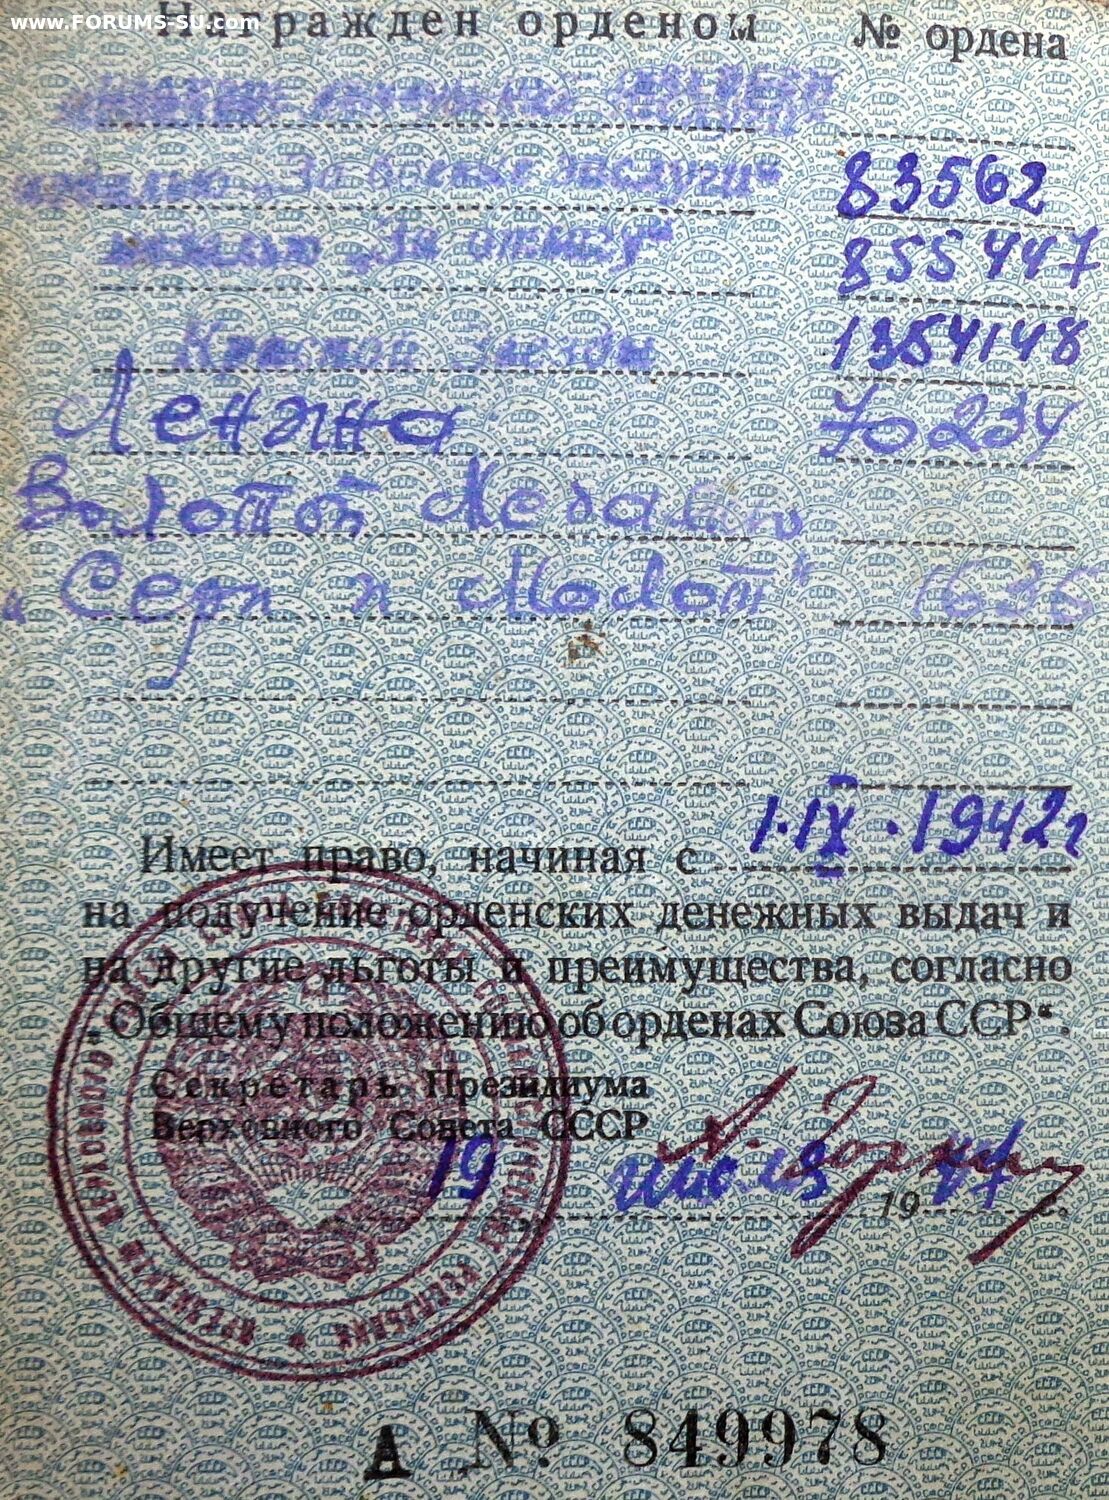 www.FORUMS-SU.com
Награжден орденом № ордена
медалью „За боевые заслуги“ 83562
медалью „За отвагу“ 355447
Красной Звезды 1354148
Ленина 70234
Золотой Медалью
„Серп и Молот“ 1636
Имеет право, начиная с 1.IX.1942г
на получение орденских денежных выдач и
на другие льготы и преимущества, согласно
„Общему положению об орденах Союза ССР“.
Секретарь Президиума
Верховного Совета СССР
19 июля 1947 г.
А № 849978